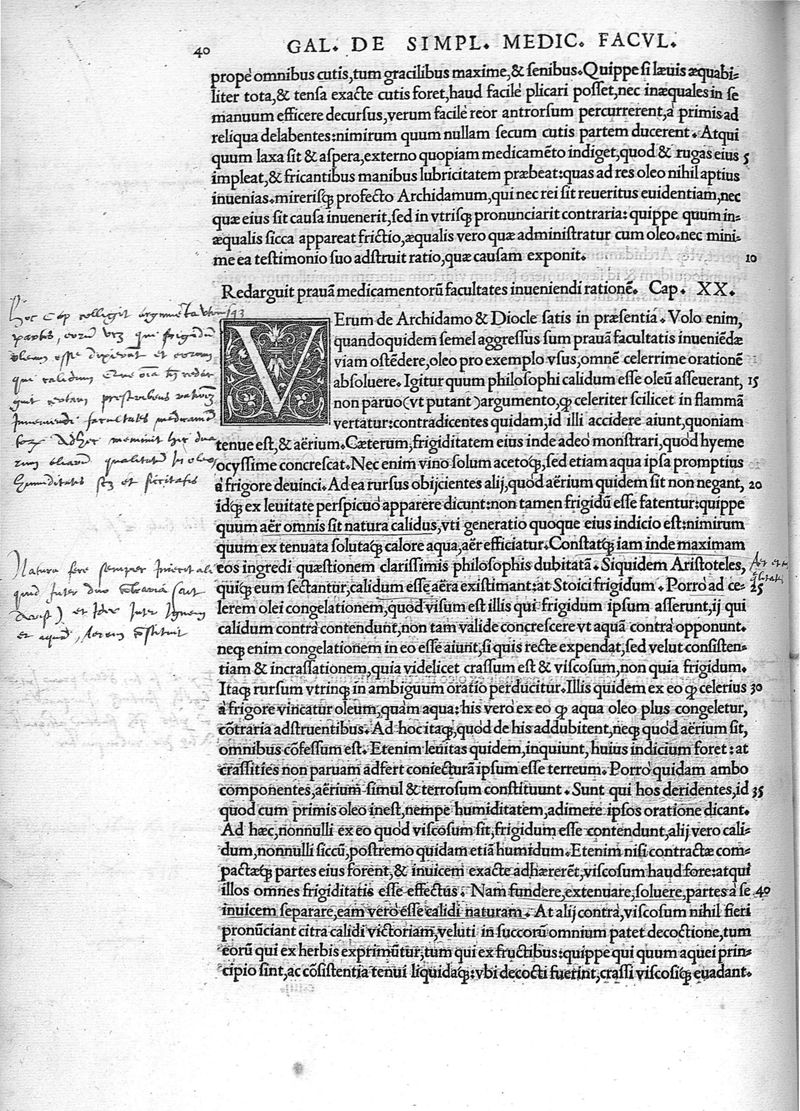 40
GAL. DE SIMPL. MEDIC. FACVL.
propè omnibus cutis, tum gracilibus maxime, & senibus. Quippe si læuis æquabi-
liter tota, & tensa exacte cutis foret, haud facilè plicari posset, nec inæquales in se
manuum efficere decursus, verum facilè reor antrorsum percurrerent, a primis ad
reliqua delabentes: nimirum quum nullam secum cutis partem ducerent. Atqui
quum laxa sit & aspera, externo quopiam medicamẽto indiget, quod & rugas eius 5
impleat, & fricantibus manibus lubricitatem præbeat: quas ad res oleo nihil aptius
inuenias. mirerisq́ꝫ profecto Archidamum, qui nec rei sit reueritus euidentiam, nec
quæ eius sit causa inuenerit, sed in vtrisq́ꝫ pronunciarit contraria: quippe quum in-
æqualis sicca appareat frictio, æqualis vero quæ administratur cum oleo. nec mini-
me ea testimonio suo adstruit ratio, quæ causam exponit. 10
Redarguit prauã medicamentorũ facultates inueniendi rationẽ. Cap. XX.
VErum de Archidamo & Diocle satis in præsentia. Volo enim,
quandoquidem semel aggressus sum prauã facultatis inueniẽdæ
viam ostẽdere, oleo pro exemplo vsus, omnẽ celerrime orationẽ
absoluere. Igitur quum philosophi calidum esse oleũ asseuerant, 15
non paruo (vt putant) argumento, ꝙ celeriter scilicet in flammã
vertatur: contradicentes quidam, id illi accidere aiunt, quoniam
tenue est, & aërium. Cæterum, frigiditatem eius inde adeo monstrari, quod hyeme
ocyssime concrescat. Nec enim vino solum acetoq́ꝫ, sed etiam aqua ipsa promptius
à frigore deuinci. Ad ea rursus obijcientes alij, quod aërium quidem sit non negant, 20
idq́ꝫ ex leuitate perspicuò apparere dicunt: non tamen frigidũ esse fatentur: quippe
quum aër omnis sit natura calidus, vti generatio quoque eius indicio est: nimirum
quum ex tenuata solutaq́ꝫ calore aqua, aër efficiatur. Constatq́ꝫ iam inde maximam
eos ingredi quæstionem clarissimis philosophis dubitatã. Siquidem Aristoteles,
quiq́ꝫ eum sectantur, calidum esse aëra existimant: at Stoici frigidum. Porrò ad ce- 25
lerem olei congelationem, quod visum est illis qui frigidum ipsum asserunt, ij qui
calidum contrà contendunt, non tam valide concrescere vt aquã contrà opponunt.
neq́ꝫ enim congelationem in eo esse aiunt, si quis recte expendat, sed velut consisten-
tiam & incrassationem, quia videlicet crassum est & viscosum, non quia frigidum.
Itaq́ꝫ rursum vtrinq́ꝫ in ambiguum oratio perducitur. Illis quidem ex eo ꝙ celerius 30
à frigore vincatur oleum, quàm aqua: his vero ex eo ꝙ aqua oleo plus congeletur,
cõtraria adstruentibus. Ad hoc itaq́ꝫ, quòd de his addubitent, neq́ꝫ quòd aërium sit,
omnibus cõfessum est. Etenim leuitas quidem, inquiunt, huius indicium foret: at
crassities non paruam adfert coniecturã ipsum esse terreum. Porrò quidam ambo
componentes, aërium simul & terrosum constituunt. Sunt qui hos deridentes, id 35
quod cum primis oleo inest, nempe humiditatem, adimere ipsos oratione dicant.
Ad hæc, nonnulli ex eo quòd viscosum sit, frigidum esse contendunt, alij vero cali-
dum, nonnulli siccũ, postremo quidam etiã humidum. Etenim nisi contractæ com-
pactæq́ꝫ partes eius forent, & inuicem exacte adhærerẽt, viscosum haud fore: atqui
illos omnes frigiditatis esse effectus. Nam fundere, extenuare, soluere, partes a se 40
inuicem separare, eam vero esse calidi naturam. At alij contrà, viscosum nihil fieri
pronũciant citra calidi victoriam, veluti in succorũ omnium patet decoctione, tum
eorũ qui ex herbis exprimũtur, tum qui ex fructibus: quippe qui quum aquei prin-
cipio sint, ac cõsistentia tenui liquidaq́ꝫ: vbi decocti fuerint, crassi viscosiq́ꝫ euadant.
Hoc Cap colligit argumẽta
Natura fere semper
quid inter duo
et Ideo inter Ignem
et aquã, aerem constituit